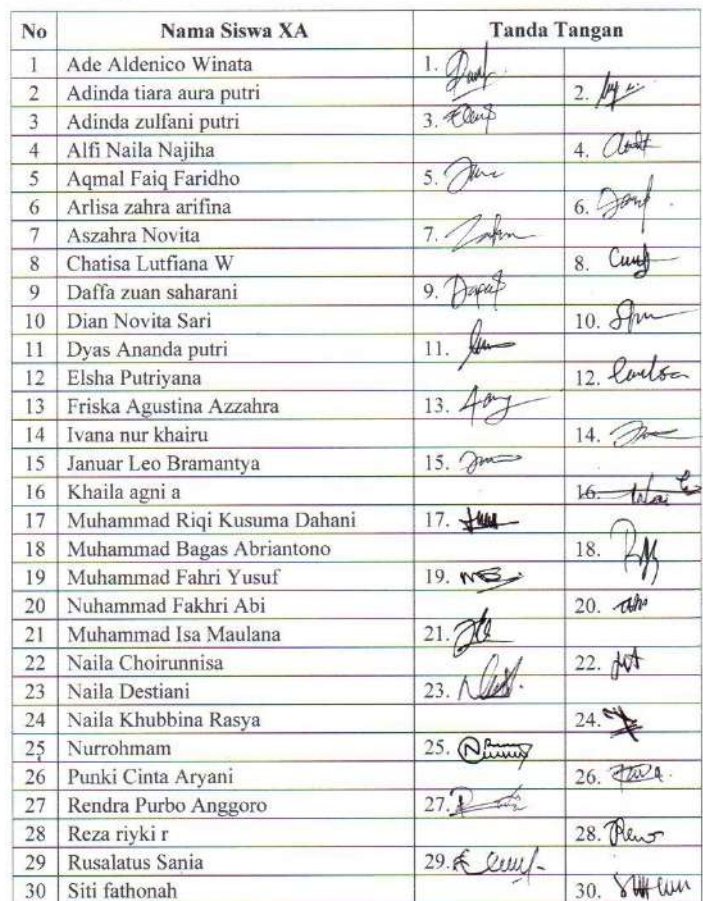 No Nama Siswa XA Tanda Tangan
1 Ade Aldenico Winata 1.
2 Adinda tiara aura putri 2.
3 Adinda zulfani putri 3.
4 Alfi Naila Najiha 4.
5 Aqmal Faiq Faridho 5.
6 Arlisa zahra arifina 6.
7 Aszahra Novita 7.
8 Chatisa Lutfiana W 8.
9 Daffa zuan saharani 9.
10 Dian Novita Sari 10.
11 Dyas Ananda putri 11.
12 Elsha Putriyana 12.
13 Friska Agustina Azzahra 13.
14 Ivana nur khairu 14.
15 Januar Leo Bramantya 15.
16 Khaila agni a 16.
17 Muhammad Riqi Kusuma Dahani 17.
18 Muhammad Bagas Abriantono 18.
19 Muhammad Fahri Yusuf 19.
20 Nuhammad Fakhri Abi 20.
21 Muhammad Isa Maulana 21.
22 Naila Choirunnisa 22.
23 Naila Destiani 23.
24 Naila Khubbina Rasya 24.
25 Nurrohmam 25.
26 Punki Cinta Aryani 26.
27 Rendra Purbo Anggoro 27.
28 Reza riyki r 28.
29 Rusalatus Sania 29.
30 Siti fathonah 30.